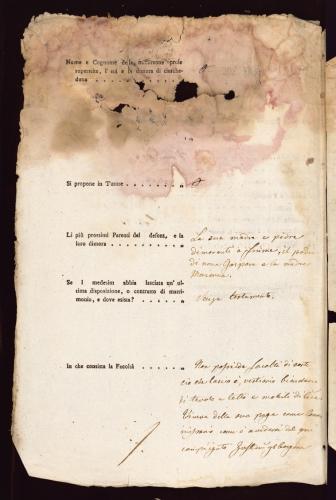 Nome e Cognome della minorenne prole
superstite, l' età e la dimora di ciasche-
duna . . . . . . . . . . „ „
Si propone in Tutore . . . . . . . „ „
Li più prossimi Parenti del defont, e la
loro dimora . . . . . . . . . . „ „
La sua madre e padre
dimoranti a Fiume, il padre
di nome Gaspare e la madre
Se I medesimi abbia lasciata un' ul-
tima disposizione, o contratto di matri-
monio, e dove esista? . . . . . . „ „
testamento.
In che consista la Facoltà . . . . . . „ „
Non possiede facoltà di sorte
ciò che lascia è, vestiario biancheria
di tavola e letto e mobili di casa
Viveva della sua paga come Com-
missario come